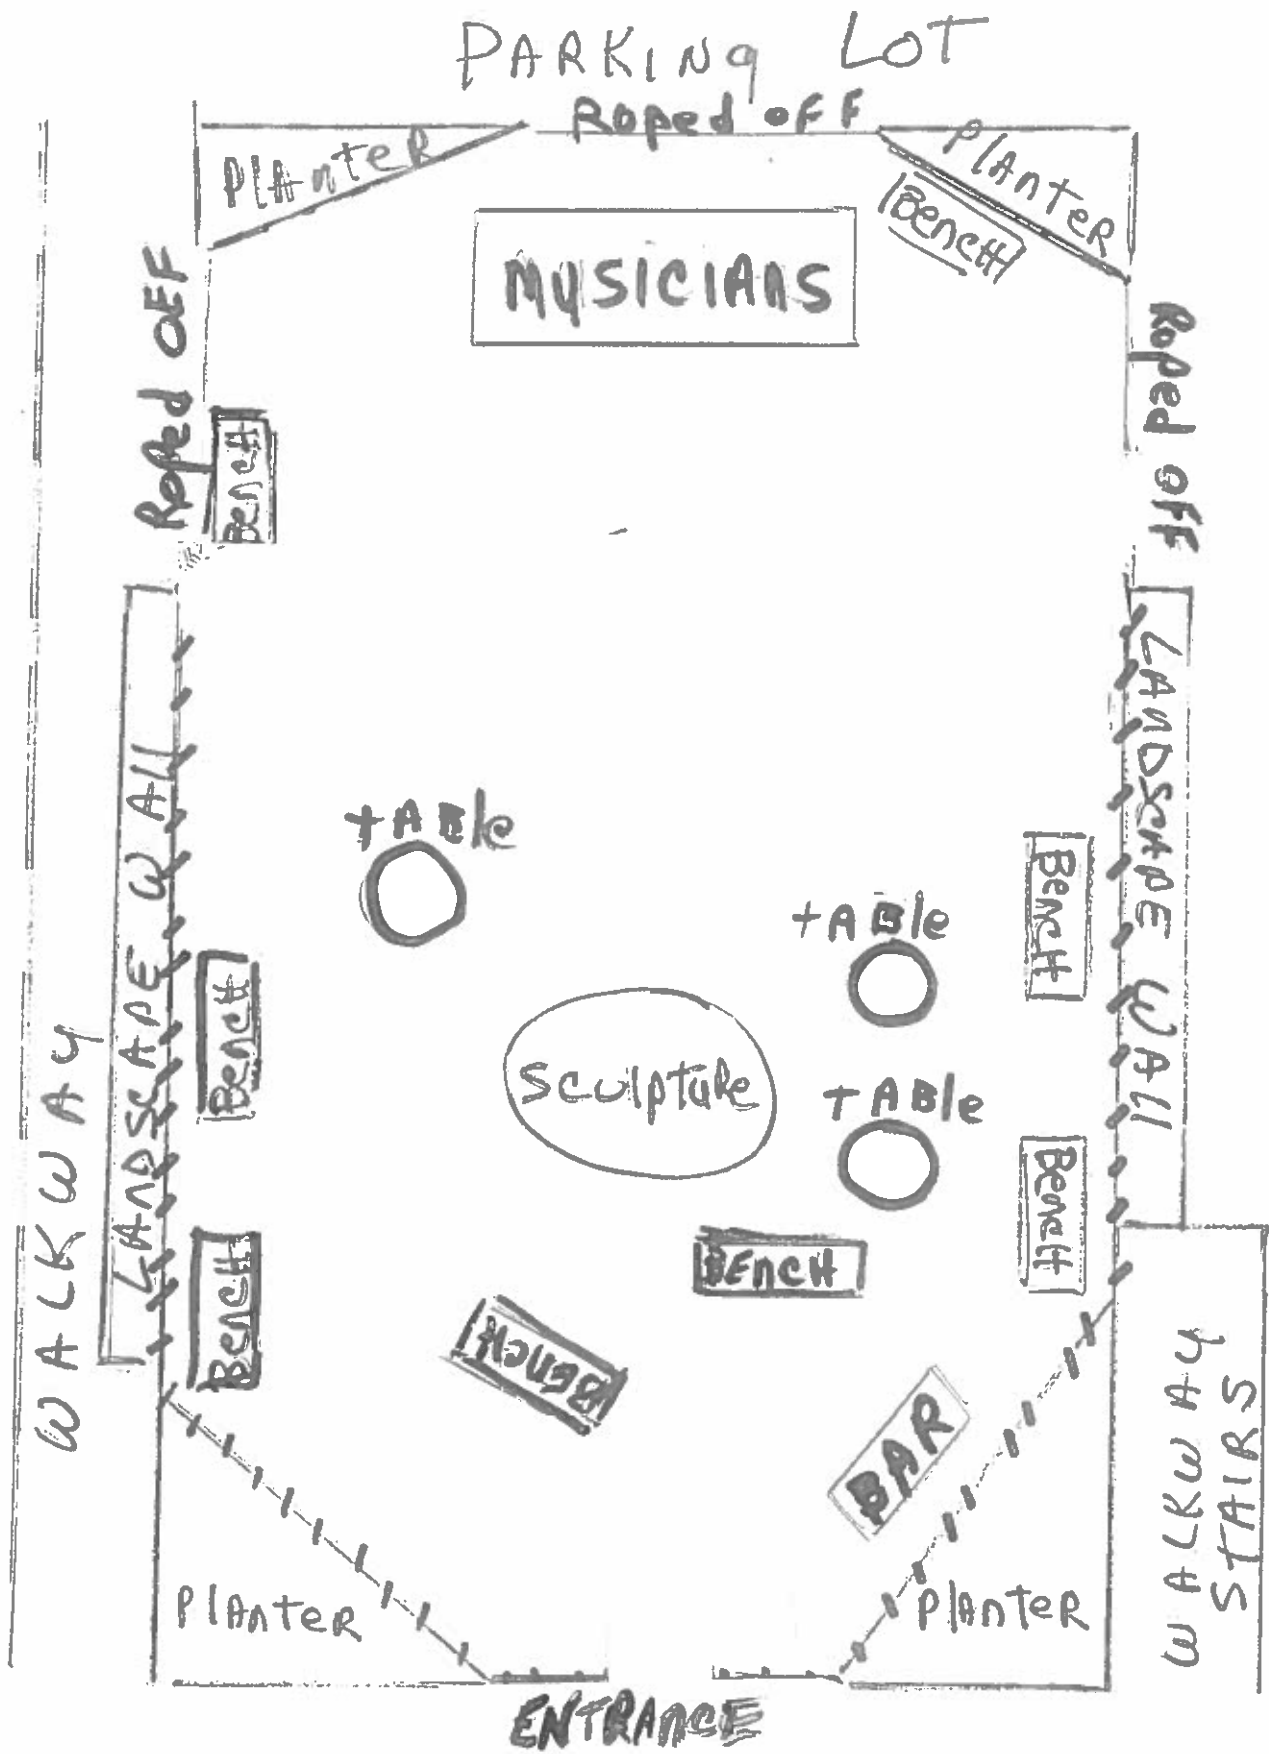 PARKINg LOT
Roped oFF
PlAnteR
PlAnteR
BencH
MUSICIAnS
Roped OFF
Roped OFF
BencH
LANDSCAPE WAll
LAnDSCAPE WAll
+ABle
+ABle
BencH
BencH
WALKWAY
Sculpture
+ABle
BencH
BencH
BEncH
BEncH
BAR
WALKWAY
STAIRS
PlAnteR
PlAnteR
ENTRAncE